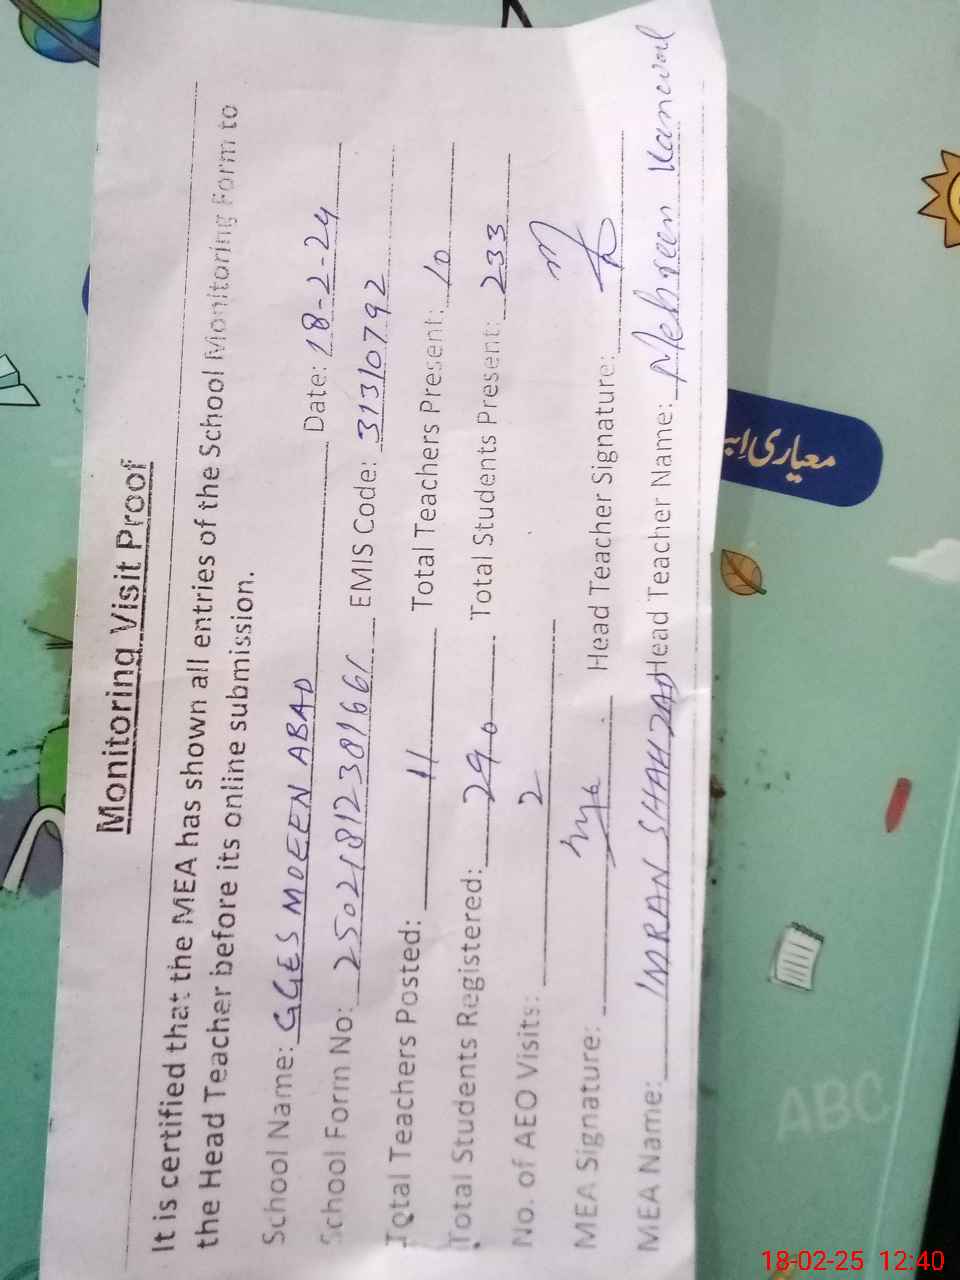 Monitoring Visit Proof
It is certified that the MEA has shown all entries of the School Monitoring Form to
the Head Teacher before its online submission.
School Name: GGES MOEEN ABAD Date: 18-2-24
School Form No: 2502181238166 EMIS Code: 31310792
Total Teachers Posted: 11 Total Teachers Present: 10
Total Students Registered: 290 Total Students Present: 233
No. of AEO Visits: 2
MEA Signature: Head Teacher Signature:
MEA Name: IMRAN SHAHZAD Head Teacher Name: Mehreen Kanwal
معیاری
ABC
18-02-25 12:40